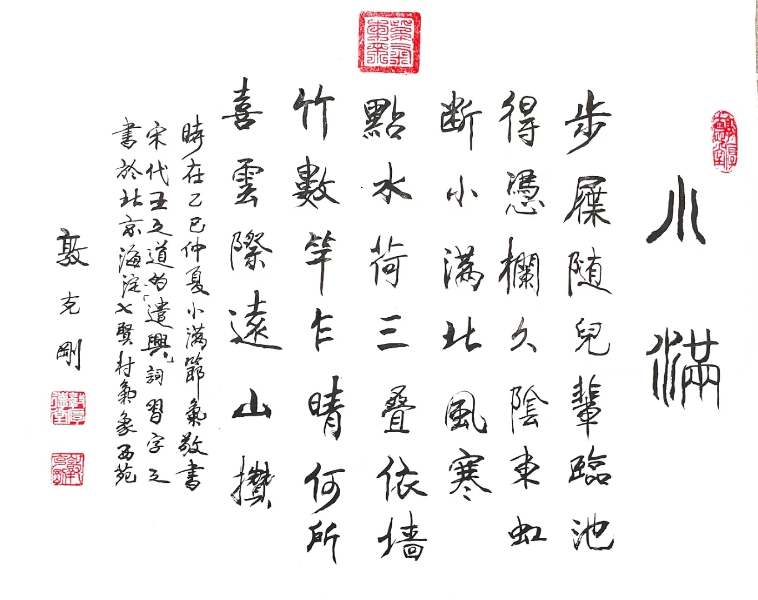 小滿
步屧随兒輩臨池
得憑欄久陰東虹
断小满北風寒
點水荷三叠依墙
竹數竿乍晴何所
喜雲際遠山攢
時在乙巳仲夏小满節氣敬書
宋代王之道的「遣興」詞習字之
書於北京海淀七賢村氣象西苑
敦克剛